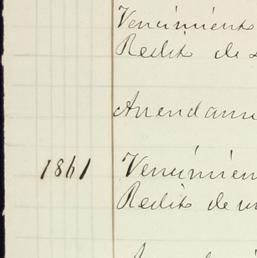 Vencimients
Redits de
Arrendami
1861 Vencimien
Redits de un